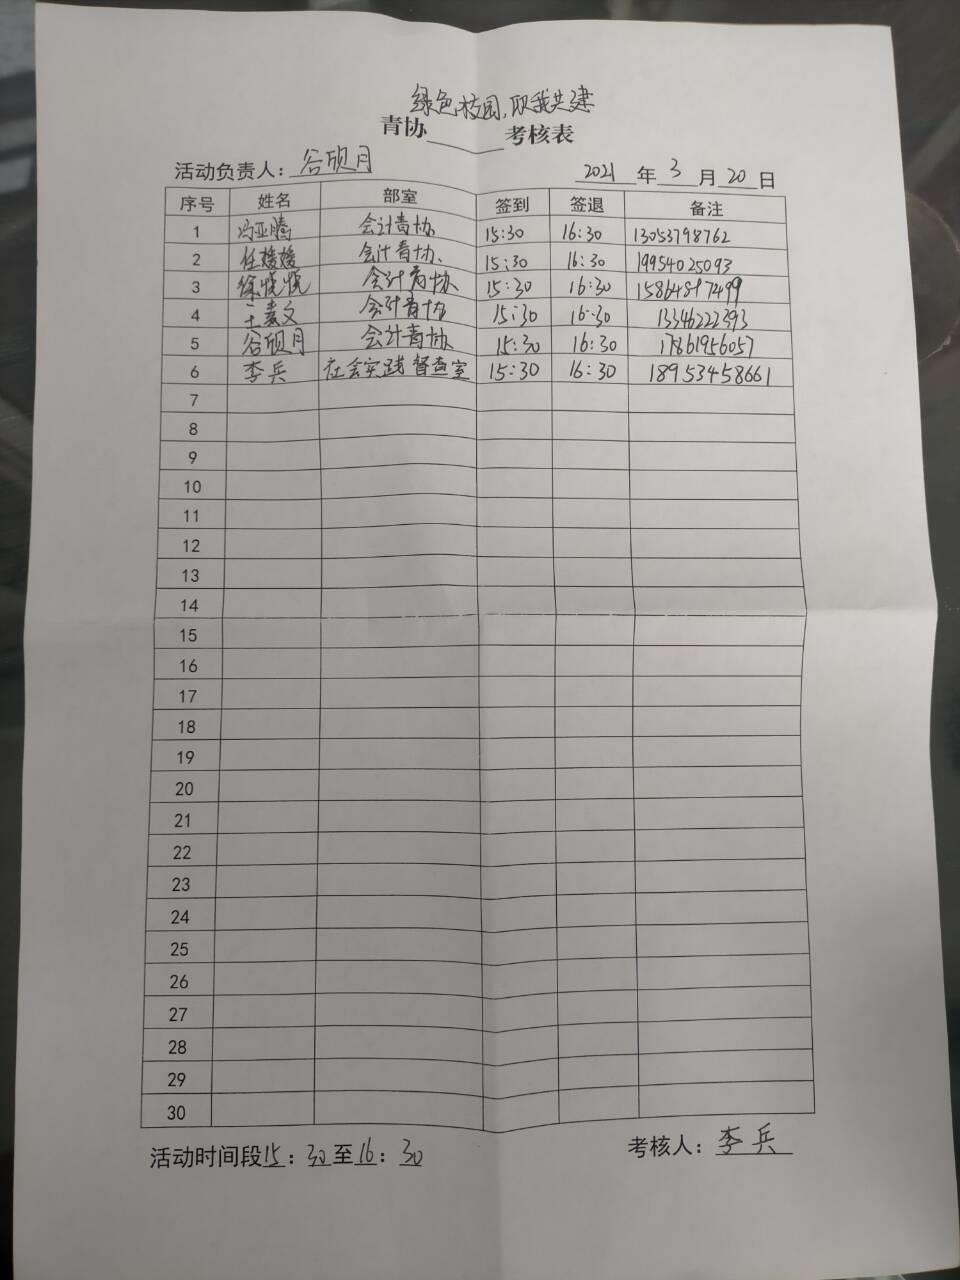 绿色校园，取我共建
青协______考核表
活动负责人：谷砚月 2021年3月20日
序号 姓名 部室 签到 签退 备注
1 冯亚腾 会计青协 15:30 16:30 13053798762
2 任媛媛 会计青协 15:30 16:30 19954025093
3 徐悦悦 会计青协 15:30 16:30 15864897499
4 王素文 会计青协 15:30 16:30 13346222393
5 谷砚月 会计青协 15:30 16:30 17861956057
6 李兵 社会实践督查室 15:30 16:30 18953458661
7
8
9
10
11
12
13
14
15
16
17
18
19
20
21
22
23
24
25
26
27
28
29
30
活动时间段15：30至16：30 考核人：李兵